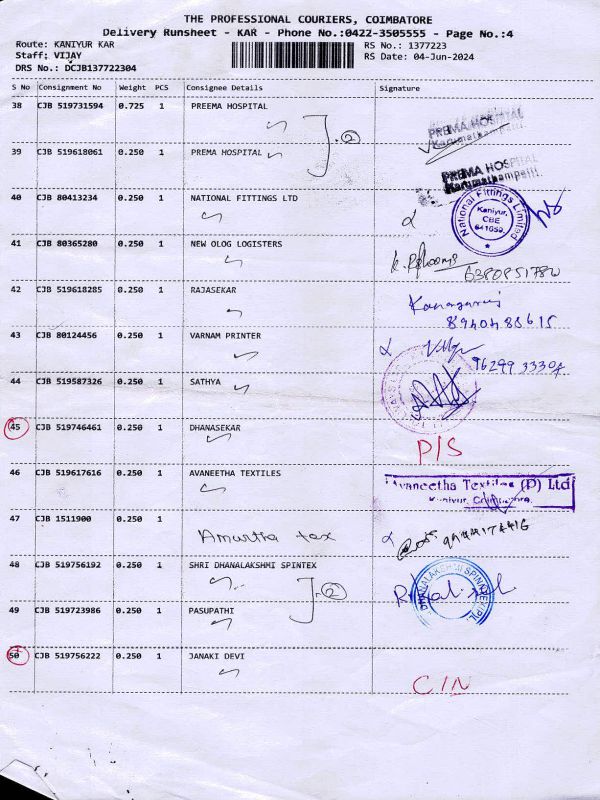 THE PROFESSIONAL COURIERS, COIMBATORE
Delivery Runsheet - KAR - Phone No.:0422-3505555 - Page No.:4
Route: KANIYUR KAR RS No.: 1377223
Staff: VIJAY RS Date: 04-Jun-2024
DRS No.: DCJB137722304
S No Consignment No Weight PCS Consignee Details Signature
38 CJB 519731594 0.725 1 PREEMA HOSPITAL
2
PREMA HOSPITAL
Karumathampatti
39 CJB 519618061 0.250 1 PREMA HOSPITAL
PREMA HOSPITAL
Karumathampatti
40 CJB 80413234 0.250 1 NATIONAL FITTINGS LTD
National Fittings Limited
Kaniyur,
CBE
641659.
41 CJB 80365280 0.250 1 NEW OLOG LOGISTERS
42 CJB 519618285 0.250 1 RAJASEKAR
43 CJB 80124456 0.250 1 VARNAM PRINTER
44 CJB 519587326 0.250 1 SATHYA
45 CJB 519746461 0.250 1 DHANASEKAR
P/S
46 CJB 519617616 0.250 1 AVANEETHA TEXTILES
Avaneetha Textiles (P) Ltd
Kaniyur, Coimbatore.
47 CJB 1511900 0.250 1
48 CJB 519756192 0.250 1 SHRI DHANALAKSHMI SPINTEX
2
49 CJB 519723986 0.250 1 PASUPATHI
50 CJB 519756222 0.250 1 JANAKI DEVI
C/N